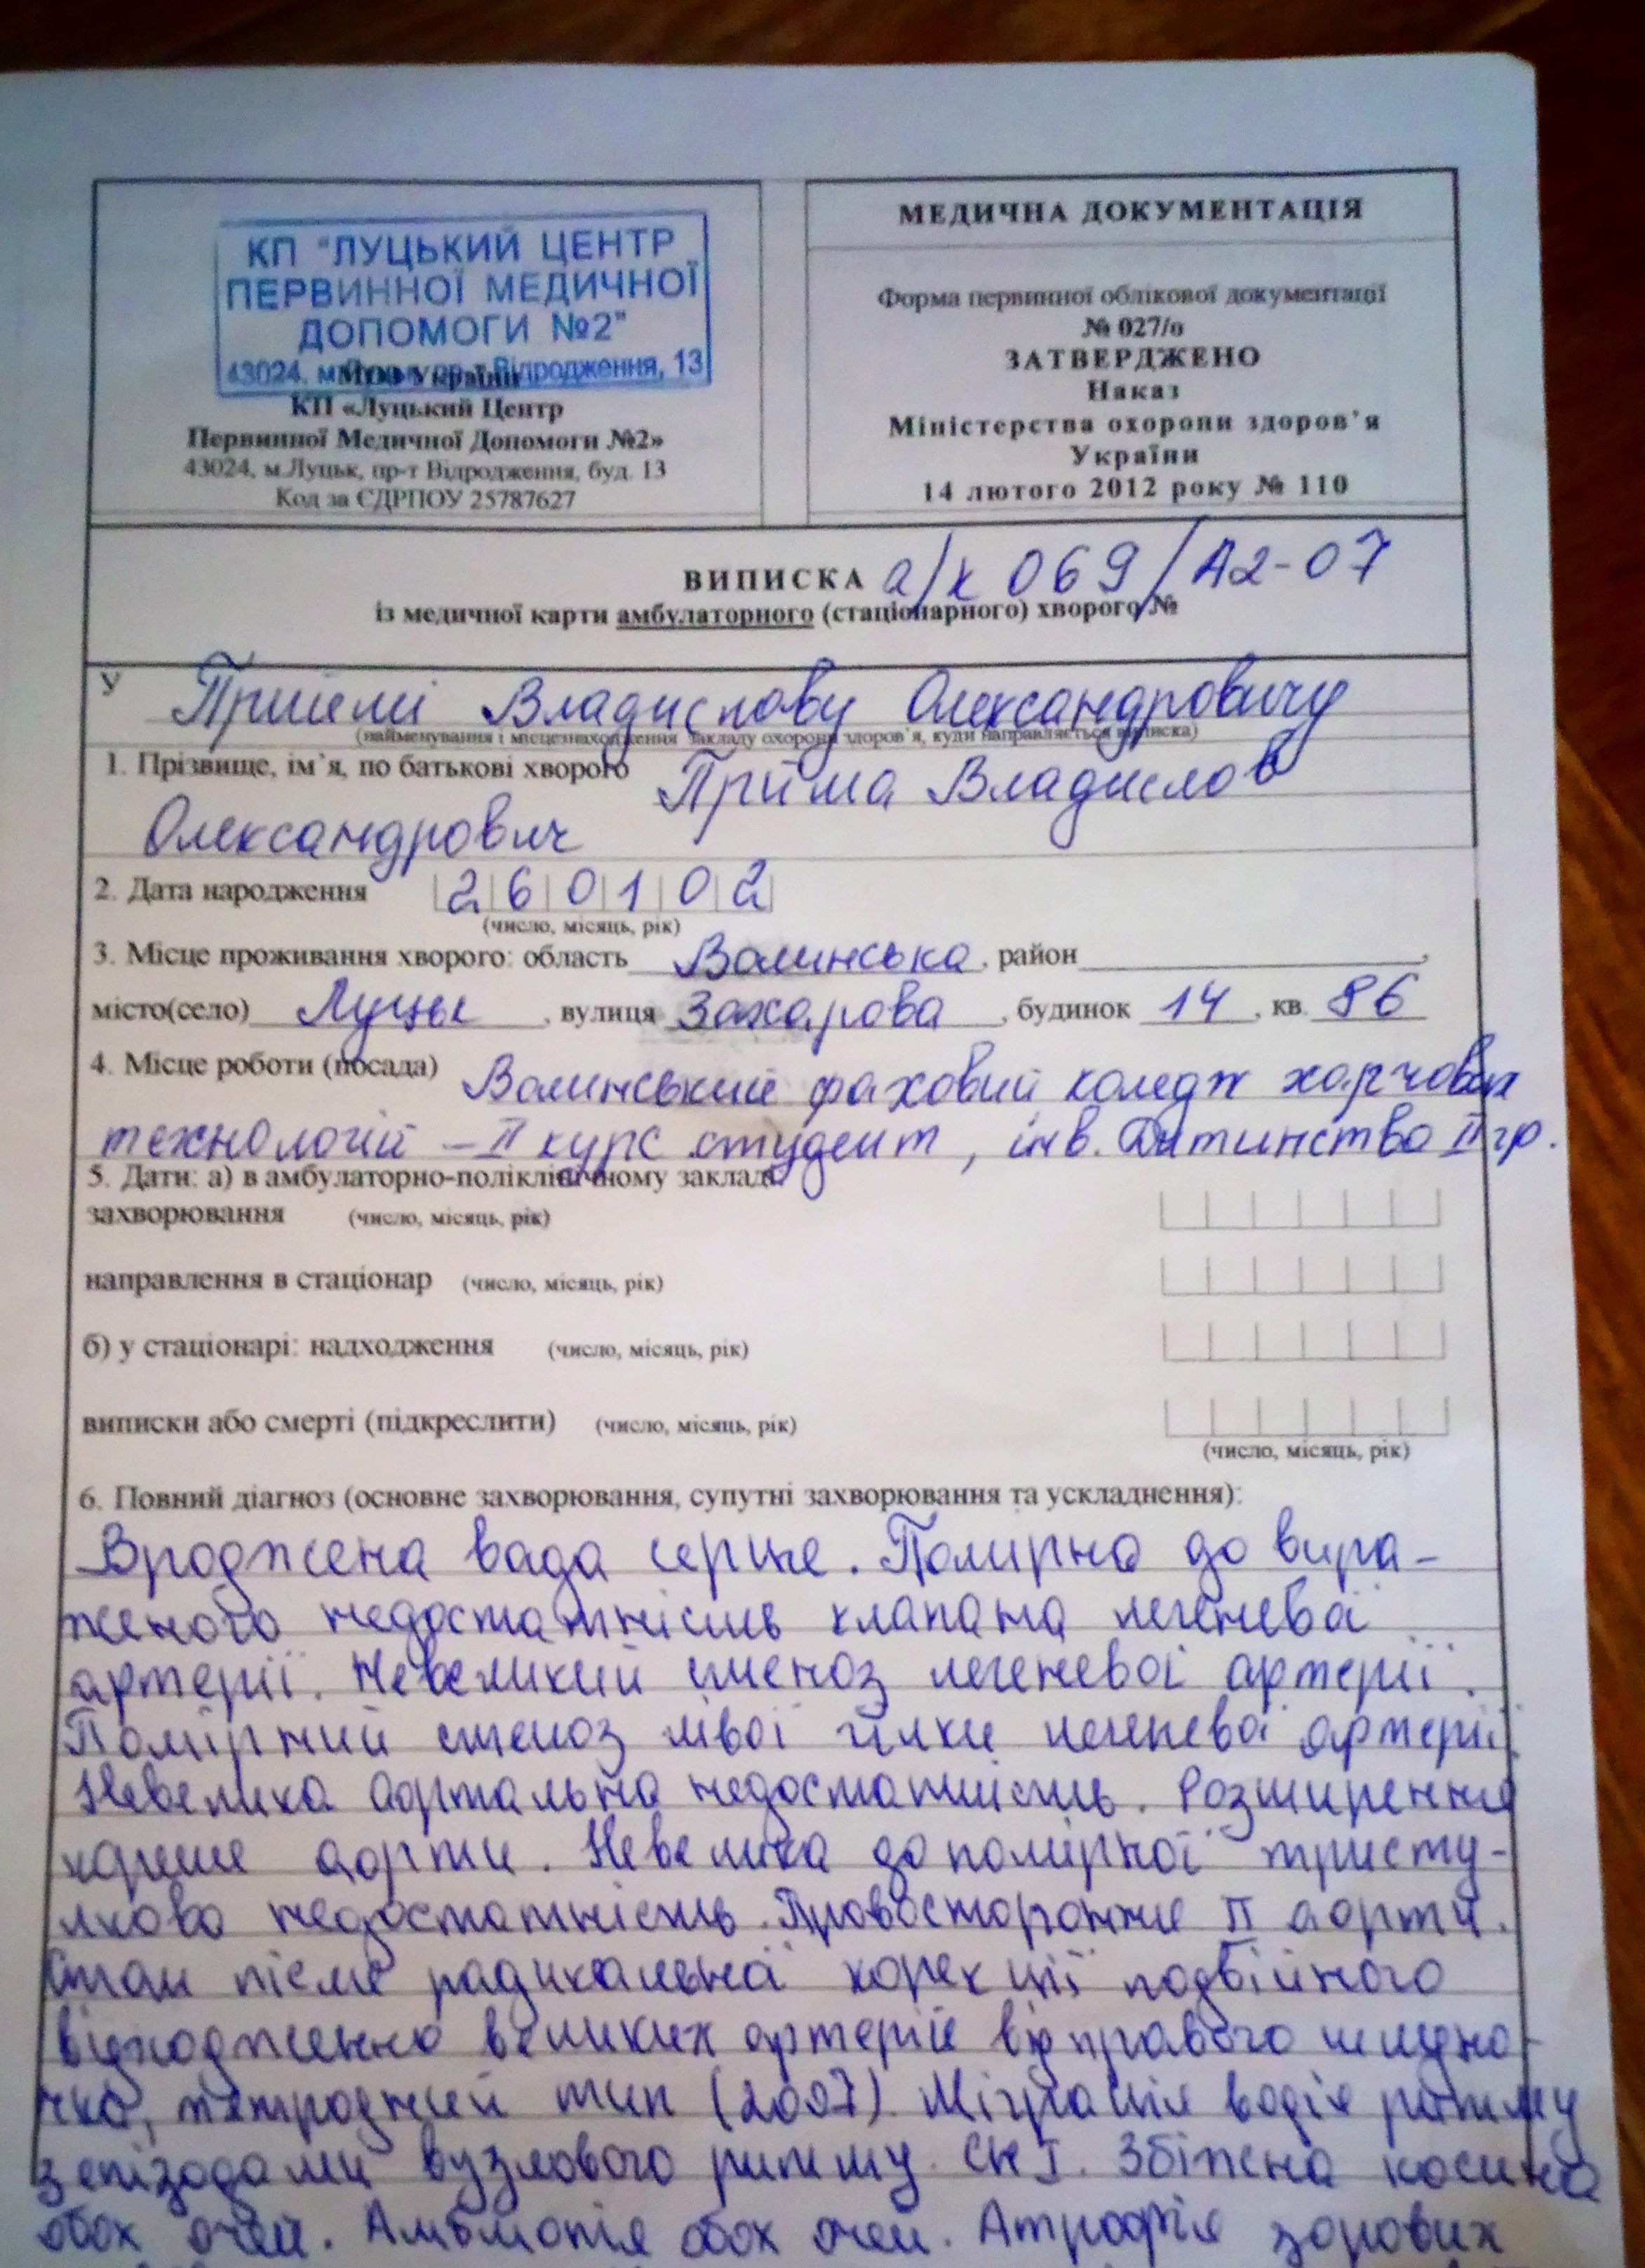 КП "ЛУЦЬКИЙ ЦЕНТР
ПЕРВИННОЇ МЕДИЧНОЇ
ДОПОМОГИ №2"
43024, м. пр-т Відродження, 13
МОЗ України
КП «Луцький Центр
Первинної Медичної Допомоги №2»
43024, м.Луцьк, пр-т Відродження, буд. 13
Код за ЄДРПОУ 25787627
МЕДИЧНА ДОКУМЕНТАЦІЯ
Форма первинної облікової документації
№ 027/о
ЗАТВЕРДЖЕНО
Наказ
Міністерства охорони здоров'я
України
14 лютого 2012 року № 110
ВИПИСКА а/к 069/А2-07
із медичної карти амбулаторного (стаціонарного) хворого №
У Владиславу Олександровичу
(найменування і місцезнаходження закладу охорони здоров'я, куди направляється виписка)
1. Прізвище, ім'я, по батькові хворого Прийма Владислав
Олександрович
2. Дата народження 260102
(число, місяць, рік)
3. Місце проживання хворого: область Волинська, район ,
місто(село) Луцьк, вулиця Захарова, будинок 14, кв. 86
4. Місце роботи (посада) Волинський фаховий коледж харчових
технологій – II курс студент, інв. дитинства II гр.
5. Дати: а) в амбулаторно-поліклінічному закладі:
захворювання (число, місяць, рік)
направлення в стаціонар (число, місяць, рік)
б) у стаціонарі: надходження (число, місяць, рік)
виписки або смерті (підкреслити) (число, місяць, рік)
(число, місяць, рік)
6. Повний діагноз (основне захворювання, супутні захворювання та ускладнення):
Вроджена вада серця. Помірна до вира-
женого недостатність клапана легеневої
артерії. Невеликий стеноз легеневої артерії.
Помірний стеноз лівої гілки легеневої артерії.
Невелика аортальна недостатність. Розширення
кореня аорти. Невелика до помірної тристу-
лкова недостатність. Правостороння аорти.
Стан після радикальної корекції подвійного
відходження великих артерій від правого шлуно-
чка, тетродний тип (2007). Міграція водія ритму
з епізодами вузлового ритму. СН I. Збіжна косина
обох очей. Амбліопія обох очей. Атрофія зорових